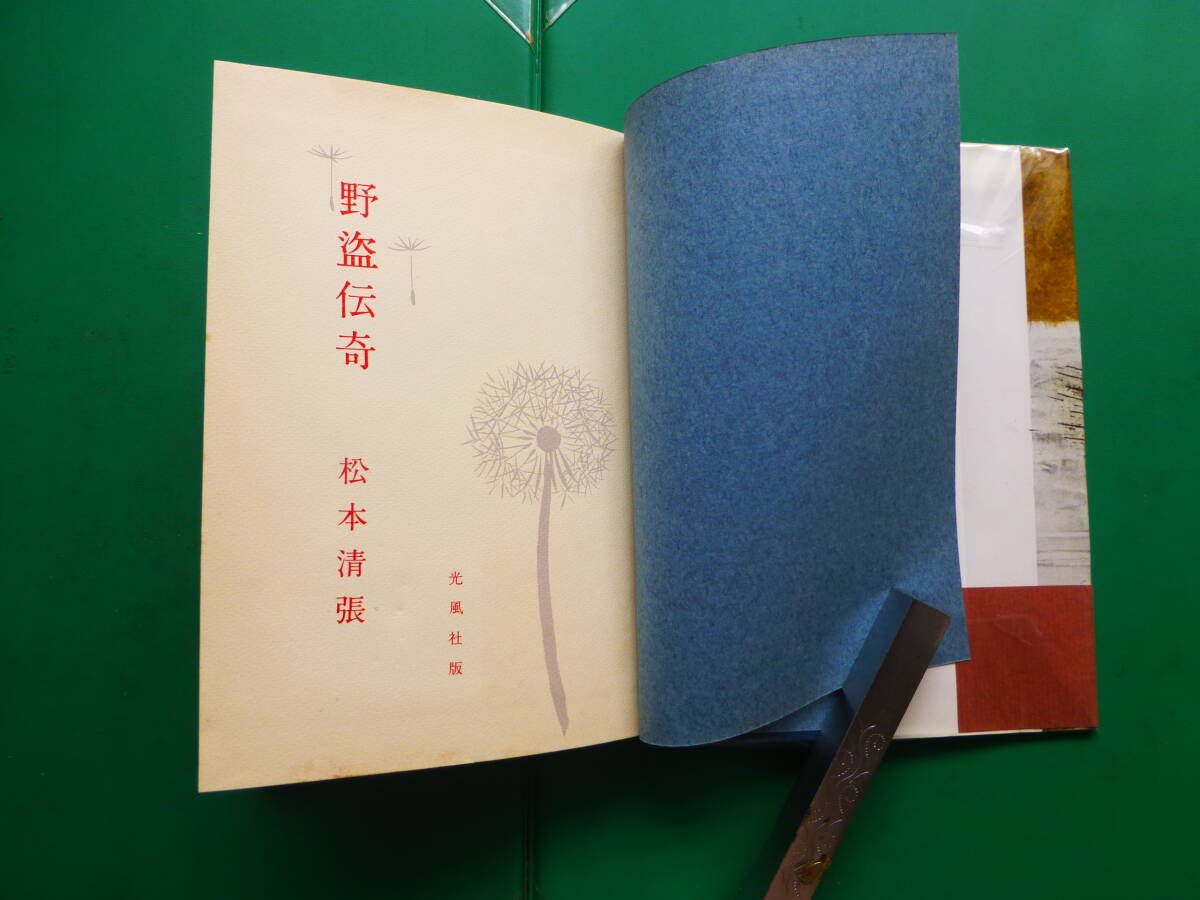 野盗伝奇
松本清張
光風社版